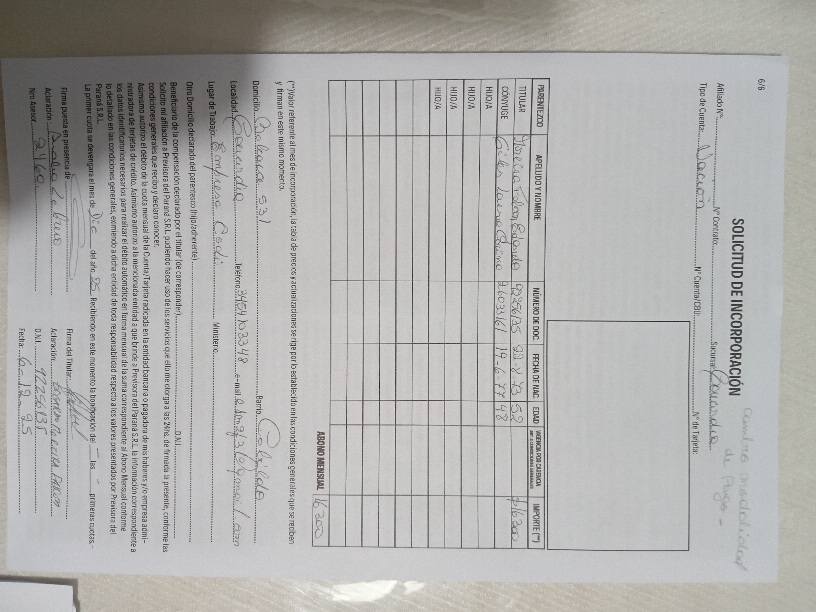 6/6
SOLICITUD DE INCORPORACIÓN
cambio modalidad
de Pago -
Afiliado Nº: Nº Contrato: Sucursal: Concordia
Tipo de Cuenta: Nacion Nº Cuenta/CBU: Nº de Tarjeta:
PARENTEZCO APELLIDO Y NOMBRE NÚMERO DE DOC. FECHA DE NAC. EDAD VIGENCIA POR CARENCIA IMPORTE (**)
TITULAR 92256135 22-8 73 52 $16300
CÓNYUGE 26033161 19-6-77 48
HIJO/A
HIJO/A
HIJO/A
HIJO/A
HIJO/A
ABONO MENSUAL 16300
(**)Valor referente al mes de incorporación, la tabla de precios y actualizaciones se rige por lo establecido en las condiciones generales que se reciben
y firman en este mismo momento.
Domicilio: 531 Barrio:
Localidad: Concordia Teléfono: 3454102348 e-mail:
Lugar de Trabajo: Empresa Ministerio:
Otro Domicilio declarado del parentezco (hijo/adherente)
Beneficiario de la compensación declarado por el titular (de corresponder) D.N.I.
Solicito mi afiliación a Previsora del Paraná S.R.L. pudiendo hacer uso de los servicios que ella me otorga a las 24hs. de firmada la presente, conforme las
condiciones generales que recibo y declaro conocer.
Asimismo autorizo el débito de la cuota mensual de la Cuenta/Tarjeta radicada en la entidad bancaria o pagadora de mis haberes y/o empresa admi-
nistradora de tarjetas de crédito. Asimismo autorizo a la mencionada entidad a que brinde a Previsora del Paraná S.R.L. la información correspondiente a
los datos identificatorios necesarios para realizar el débito automático en forma mensual de la suma correspondiente al Abono Mensual conforme
lo detallado en las condiciones generales, eximiendo a dicha entidad de toda responsabilidad respecto a los valores presentados por Previsora del
Paraná S.R.L.
La primer cuota se devengara el mes de Dic del año 25 Recibiendo en este momento la bonificación del - las - primeras cuotas.-
Firma puesta en presencia de Firma del Titular
Aclaración: Aclaración:
Nro Asesor: 2460 D.N.I. 92256135
Fecha: 6-12-25